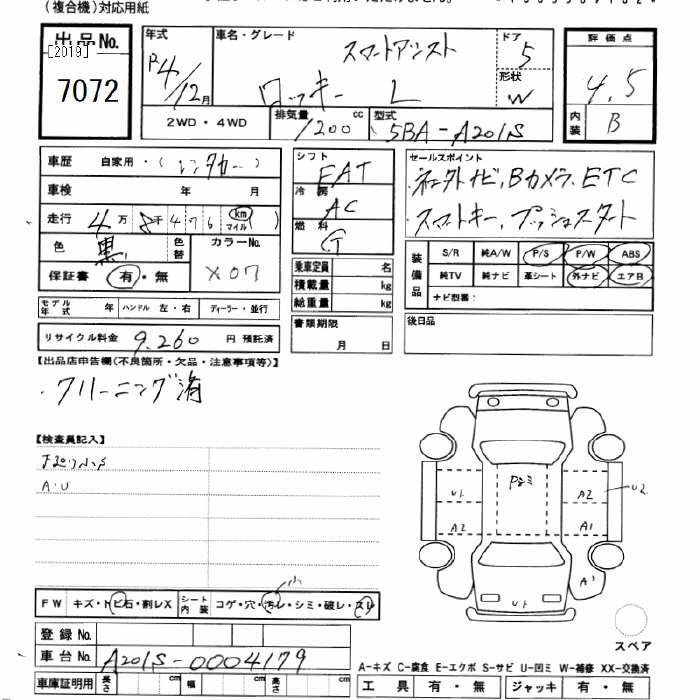 (複合機)対応用紙
出品No.
[2019]
7072
年式
R4/12月
車名・グレード
スマートアシスト
ロッキー L
ドア
5
形状
W
評価点
4.5
内装
B
2WD・4WD
排気量
1200 cc
型式
5BA-A201S
車歴 自家用・(レンタカー)
車検 年 月
走行 4万8千476 km マイル ( )
色 黒
色替
カラーNo.
X07
保証書 有・無
シフト
FAT
冷房
AC
燃料
G
乗車定員 名
積載量 kg
総重量 kg
セールスポイント
・ネクストナビ、Bカメラ、ETC
・スマートキー、プッシュスタート
装備品
S/R 純A/W P/S P/W ABS
純TV 純ナビ 革シート 外ナビ エアB
ナビ型番:
モデル年式 年 ハンドル 左・右 ディーラー・並行
書類期限
月 日
後日品
リサイクル料金 9,260 円 預託済
【出品店申告欄(不良箇所・欠品・注意事項等)】
・クリーニング済
【検査員記入】
A・U
Pシミ
U1
A2
U2
A2
A1
A1
U1
FW キズ・トビ石・割レX シート内装 コゲ・穴・汚レ・シミ・破レ・スレ
小
登録No.
車台No. A201S-0004179
車庫証明用 長さ cm 幅 cm 高さ cm
スペア
A-キズ C-腐食 E-エクボ S-サビ U-凹ミ W-補修 XX-交換済
工具 有・無 ジャッキ 有・無